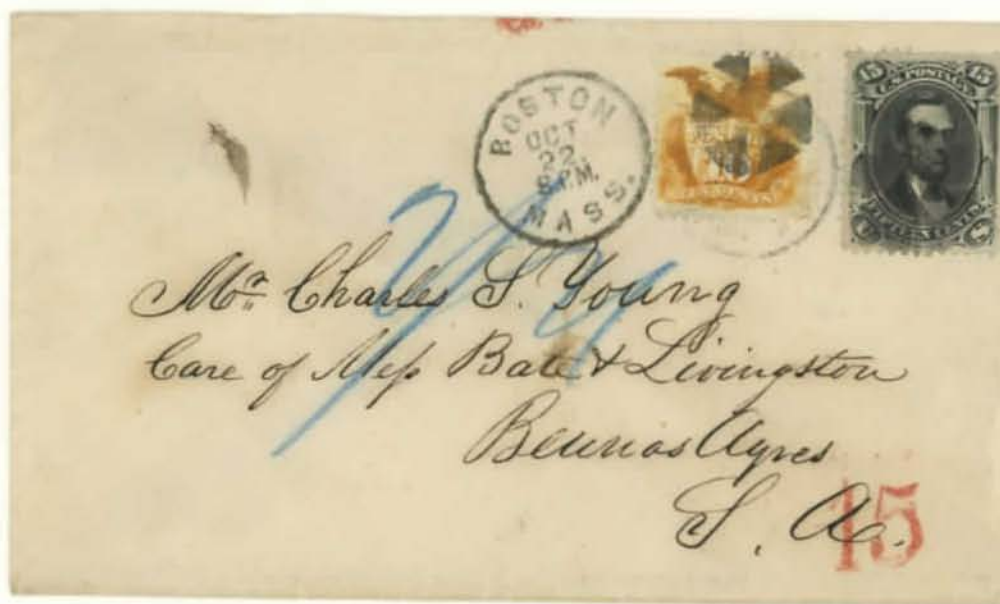 BOSTON
OCT
22
8 P.M.
MASS.
15 15
U.S. POSTAGE
TEN CENTS
FIFTEEN CENTS
Mr. Charles S. Young
Care of Mess Bate & Livingston
Beunos Ayres
S. A.
15